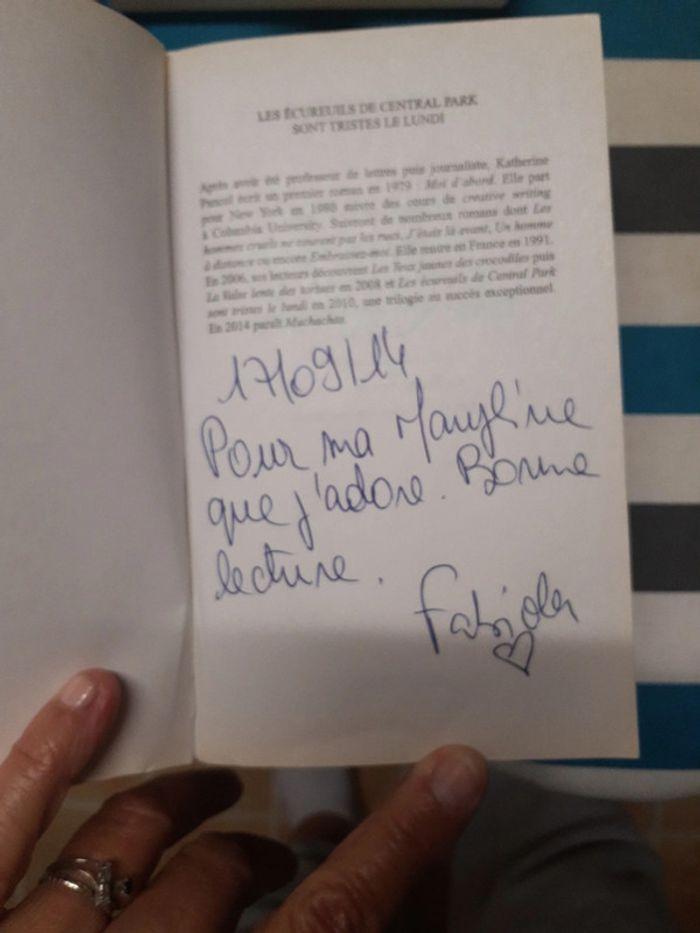 LES ÉCUREUILS DE CENTRAL PARK
SONT TRISTES LE LUNDI
Après avoir été professeur de lettres puis journaliste, Katherine
Pancol écrit un premier roman en 1979 : Moi d'abord. Elle part
pour New York en 1980 suivre des cours de creative writing
à Columbia University. Suivront de nombreux romans dont Les
hommes cruels ne courent pas les rues, J'étais là avant, Un homme
à distance ou encore Embrassez-moi. Elle rentre en France en 1991.
En 2006, ses lecteurs découvrent Les Yeux jaunes des crocodiles puis
La Valse lente des tortues en 2008 et Les écureuils de Central Park
sont tristes le lundi en 2010, une trilogie au succès exceptionnel.
En 2014 paraît Muchachas.
17/09/14
Pour ma Maryline
que j'adore. Bonne
lecture.
Fabiola